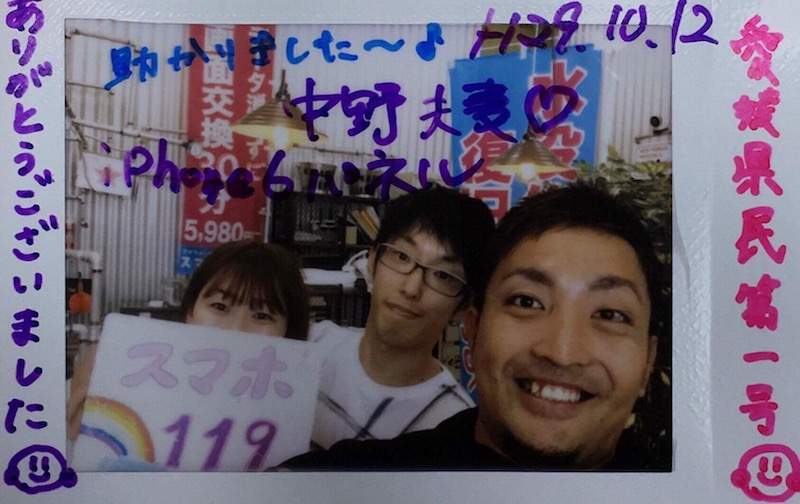 ありがとうございました
助かりました～♪
H29.10.12
中野夫妻♡
iPhone6パネル
愛媛県民第一号
画面交換30分
5,980円
水没
復旧
スマホ
119